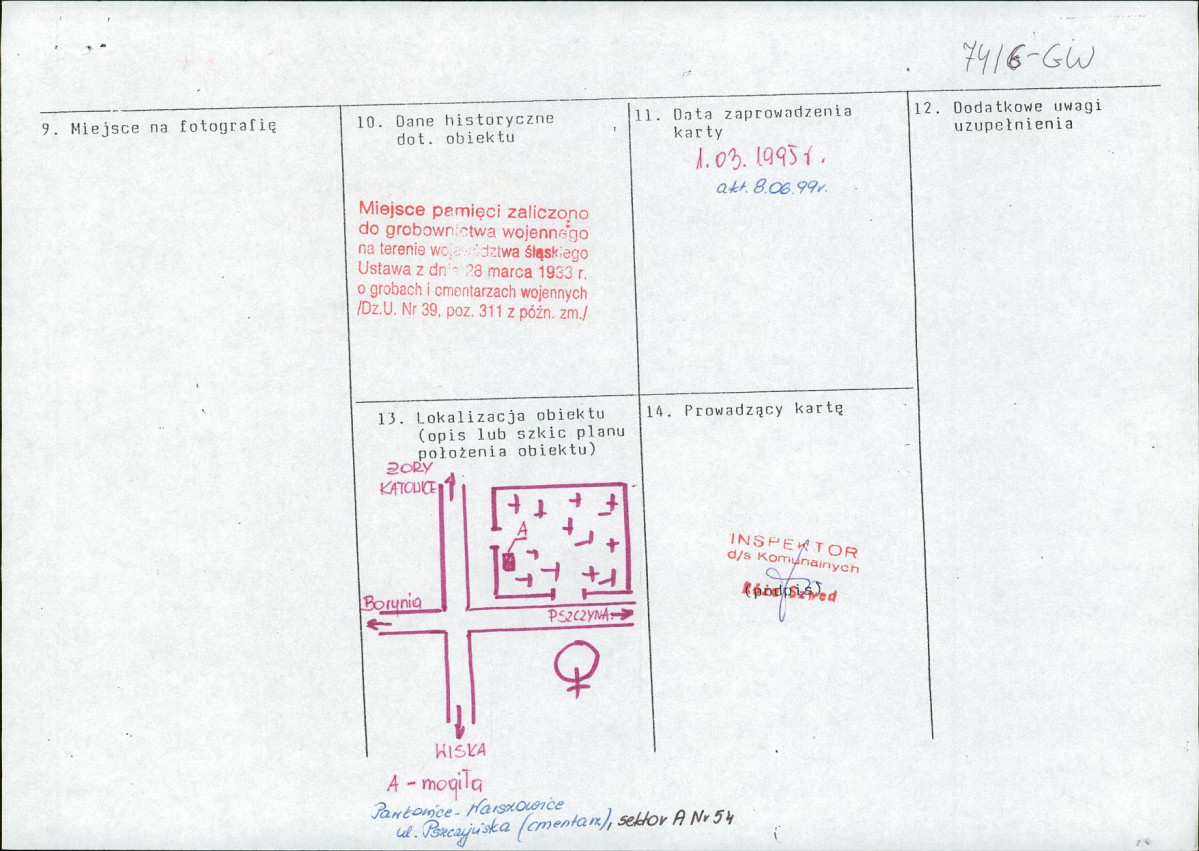 74/6-GW
9. Miejsce na fotografię
10. Dane historyczne
dot. obiektu
Miejsce pamięci zaliczono
do grobownictwa wojennego
na terenie województwa śląskiego
Ustawa z dnia 28 marca 1933 r.
o grobach i cmentarzach wojennych
/Dz.U. Nr 39, poz. 311 z późn. zm./
11. Data zaprowadzenia
karty
1.03.1995 r.
akt. 8.06.99r.
12. Dodatkowe uwagi
uzupełnienia
13. Lokalizacja obiektu
(opis lub szkic planu
położenia obiektu)
ŻORY
KATOWICE
A
Borynia
PSZCZYNA
WISKA
A - mogiła
Pawłowice - Warszowice
ul. Pszczyńska (cmentarz), sektor A Nr 54
14. Prowadzący kartę
INSPEKTOR
d/s Komunalnych
(podpis)
Szwed